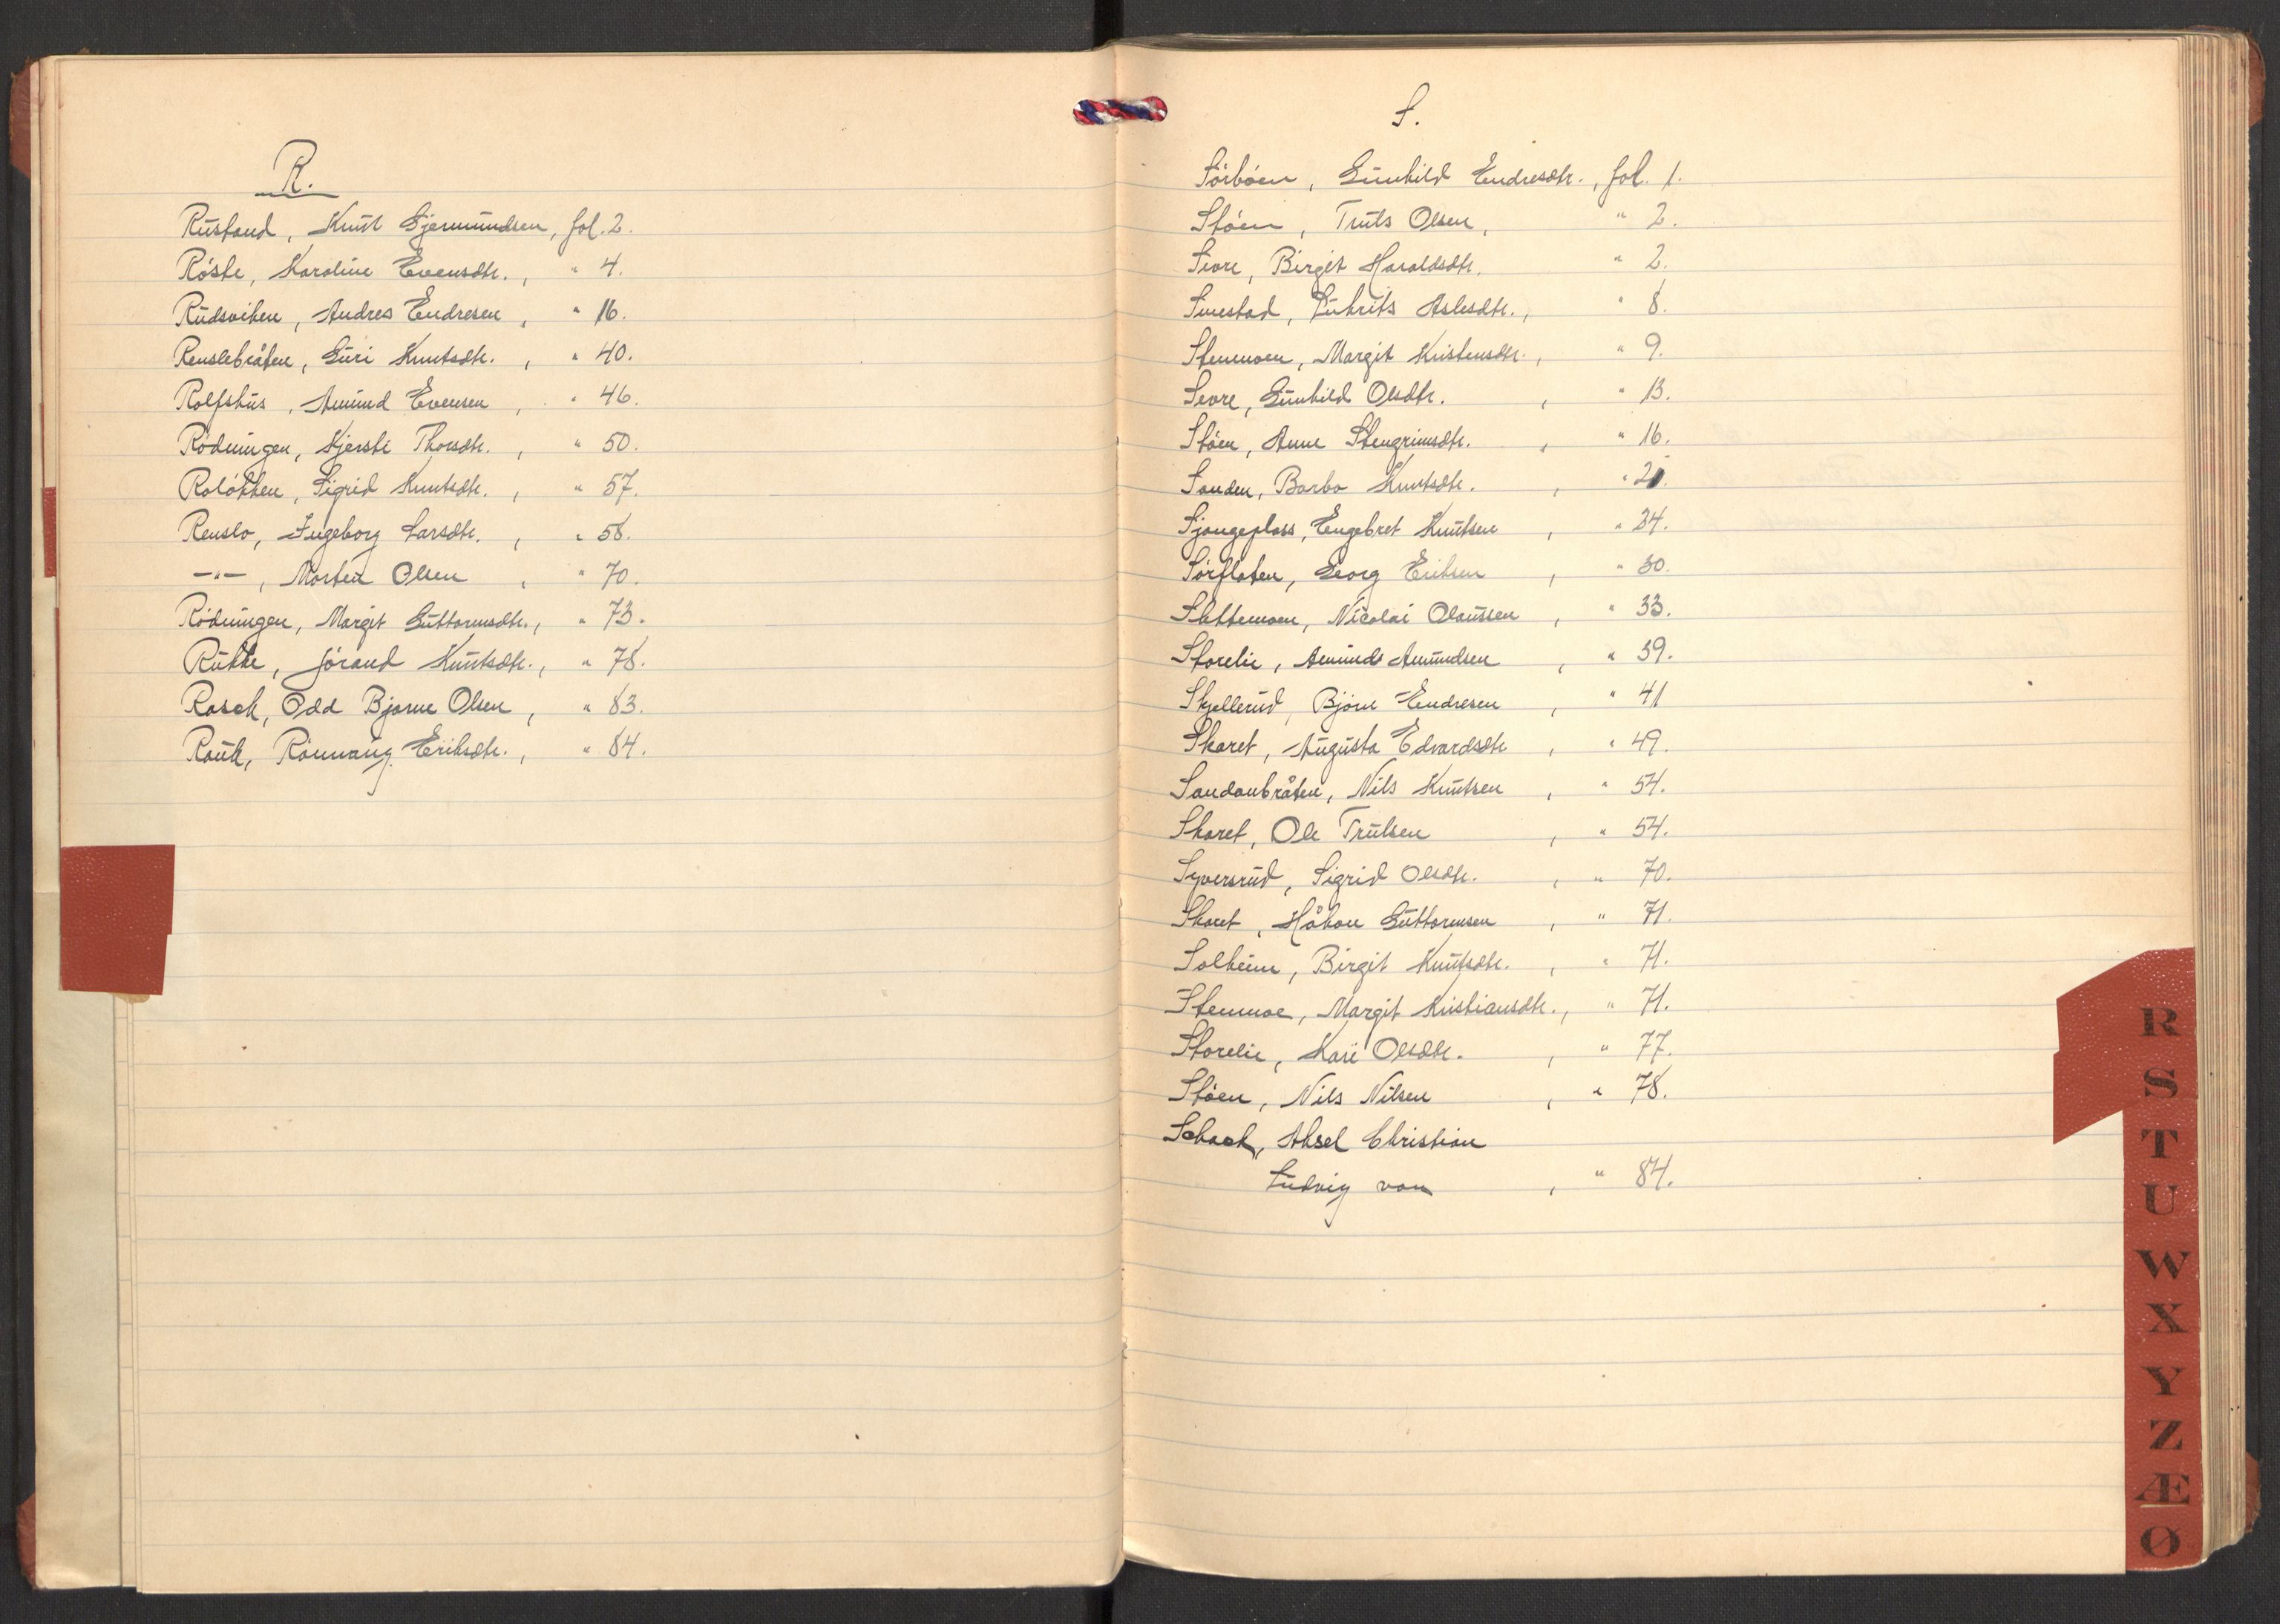 R.
Rustand, Knut Gjermundsen, fol. 2.
Röste, Karoline Evensdtr., " 4.
Rudsviken, Andres Endresen, " 16.
Renslebråten, Guri Knutsdtr., " 40.
Rolfshus, Amund Evensen, " 46.
Rödningen, Kjersti Thorsdtr., " 50.
Roløkken, Sigrid Knutsdtr., " 57.
Renslo, Ingeborg Larsdtr., " 58.
—"—, Morten Olsen, " 70.
Rödningen, Margit Guttormsdtr., " 73.
Rukke, Jörand Knutsdtr., " 78.
Rasch, Odd Bjarne Olsen, " 83.
Rauk, Rönnaug Eriksdtr., " 84.
S.
Sörböen, Gunhild Endresdtr., fol. 1.
Stöen, Truls Olsen, " 2.
Sevre, Birgit Haraldsdtr. " 2.
Sunestad, Guhrits Aslesdtr., " 8.
Stenmoen, Margit Kristensdtr., " 9.
Sevre, Gunhild Olsdtr. , " 13.
Stöen, Anne Stengrimsdtr. , " 16.
Sanden, Barbo Knutsdtr. , " 21.
Sjongeplass, Engebret Knutsen , " 24.
Sörflaten, Georg Eriksen , " 30.
Slettemoen, Nicolai Olaussen , " 33.
Storelie, Amund Amundsen , " 39.
Skjellerud, Björn Endresen , " 41
Skaret, Augusta Edvardsdtr , " 49.
Sandanbråten, Nils Knutsen , " 54.
Skaret, Ole Trulsen , " 54.
Syversrud, Sigrid Olsdtr. , " 70.
Skaret, Håkon Guttormsen , " 71.
Solheim, Birgit Knutsdtr. , " 71.
Stenmoe, Margit Kristiansdtr., " 71.
Storelie, Kari Olsdtr. , " 77.
Stöen, Nils Nilsen , " 78.
Schack, Aksel Christian
Ludvig von , " 84.
R
S
T
U
W
X
Y
Z
Æ
Ø